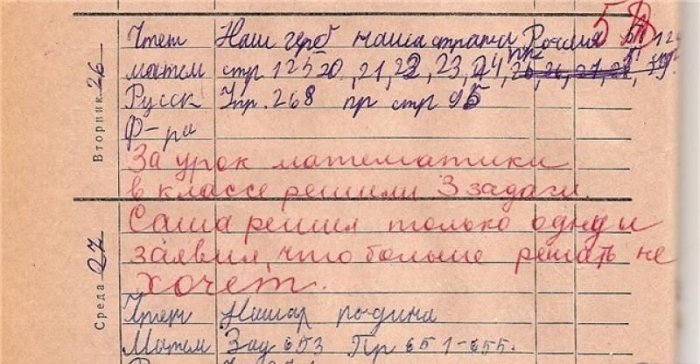 Вторник 26
Чтен Наш герб наша страна Россия 5
матем стр 125 20, 21, 22, 23, 24,
Русск Упр. 268 пр стр 95
Ф-ра
За урок математики
в классе решили 3 задачи.
Саша решил только одну и
заявил, что больше решать не
хочет.
Среда 27
Чтен Наша родина
Матем Зад 653 Пр 651-655.